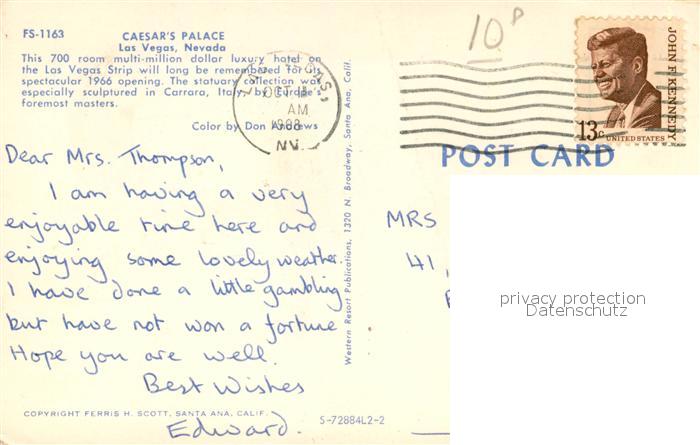 FS-1163
CAESAR'S PALACE
Las Vegas, Nevada
This 700 room multi-million dollar luxury hotel on
the Las Vegas Strip will long be remembered for its
spectacular 1966 opening. The statuary collection was
especially sculptured in Carrara, Italy, by Europe's
foremost masters.
Color by Don Andrews
Dear Mrs. Thompson,
I am having a very
enjoyable time here and
enjoying some lovely weather.
I have done a little gambling
but have not won a fortune
Hope you are well.
Best Wishes
Edward.
COPYRIGHT FERRIS H. SCOTT, SANTA ANA, CALIF.
S-72884L2-2
Western Resort Publications, 1320 N. Broadway, Santa Ana, Calif.
10P
OCT
AM
NV
JOHN F KENNEDY
13c
UNITED STATES
POST CARD
MRS
41,
privacy protection
Datenschutz